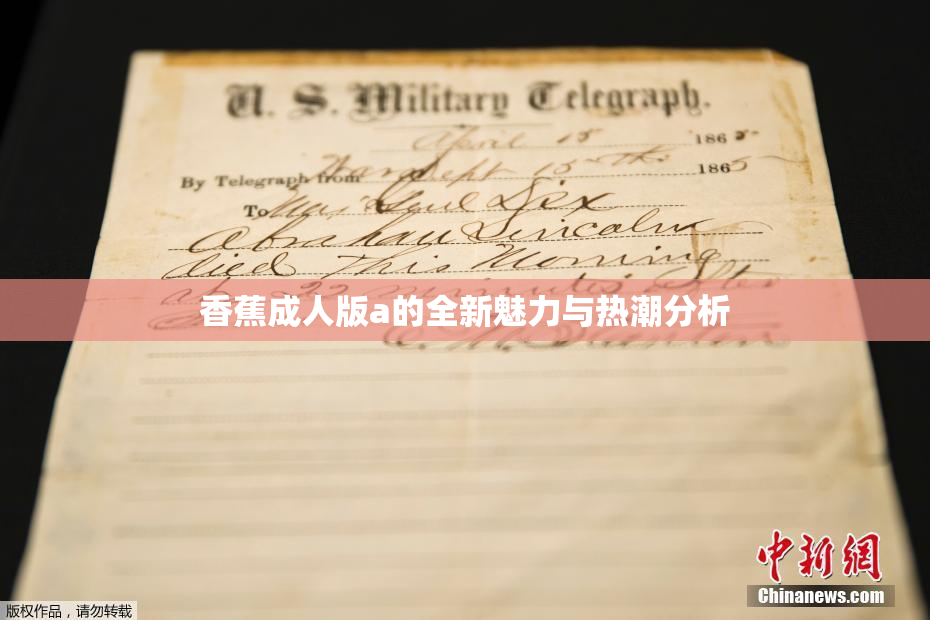 U. S. Military Telegraph.
April 15 1865
By Telegraph from War Dept 15th 1865
To Maj Genl Dix
Abraham Lincoln
died This Morning
at 22 minutes after
香蕉成人版a的全新魅力与热潮分析
E. M. Stanton
中新网
Chinanews.com
版权作品，请勿转载